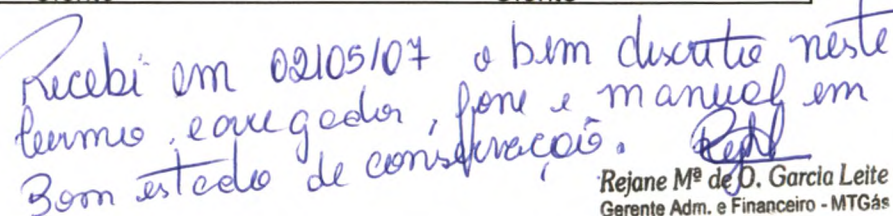 Recebi em 02/05/07 o bem descrito neste
termo, carregador, fone e manual em
Bom estado de conservação.
Rejane Mª de O. Garcia Leite
Gerente Adm. e Financeiro - MTGás